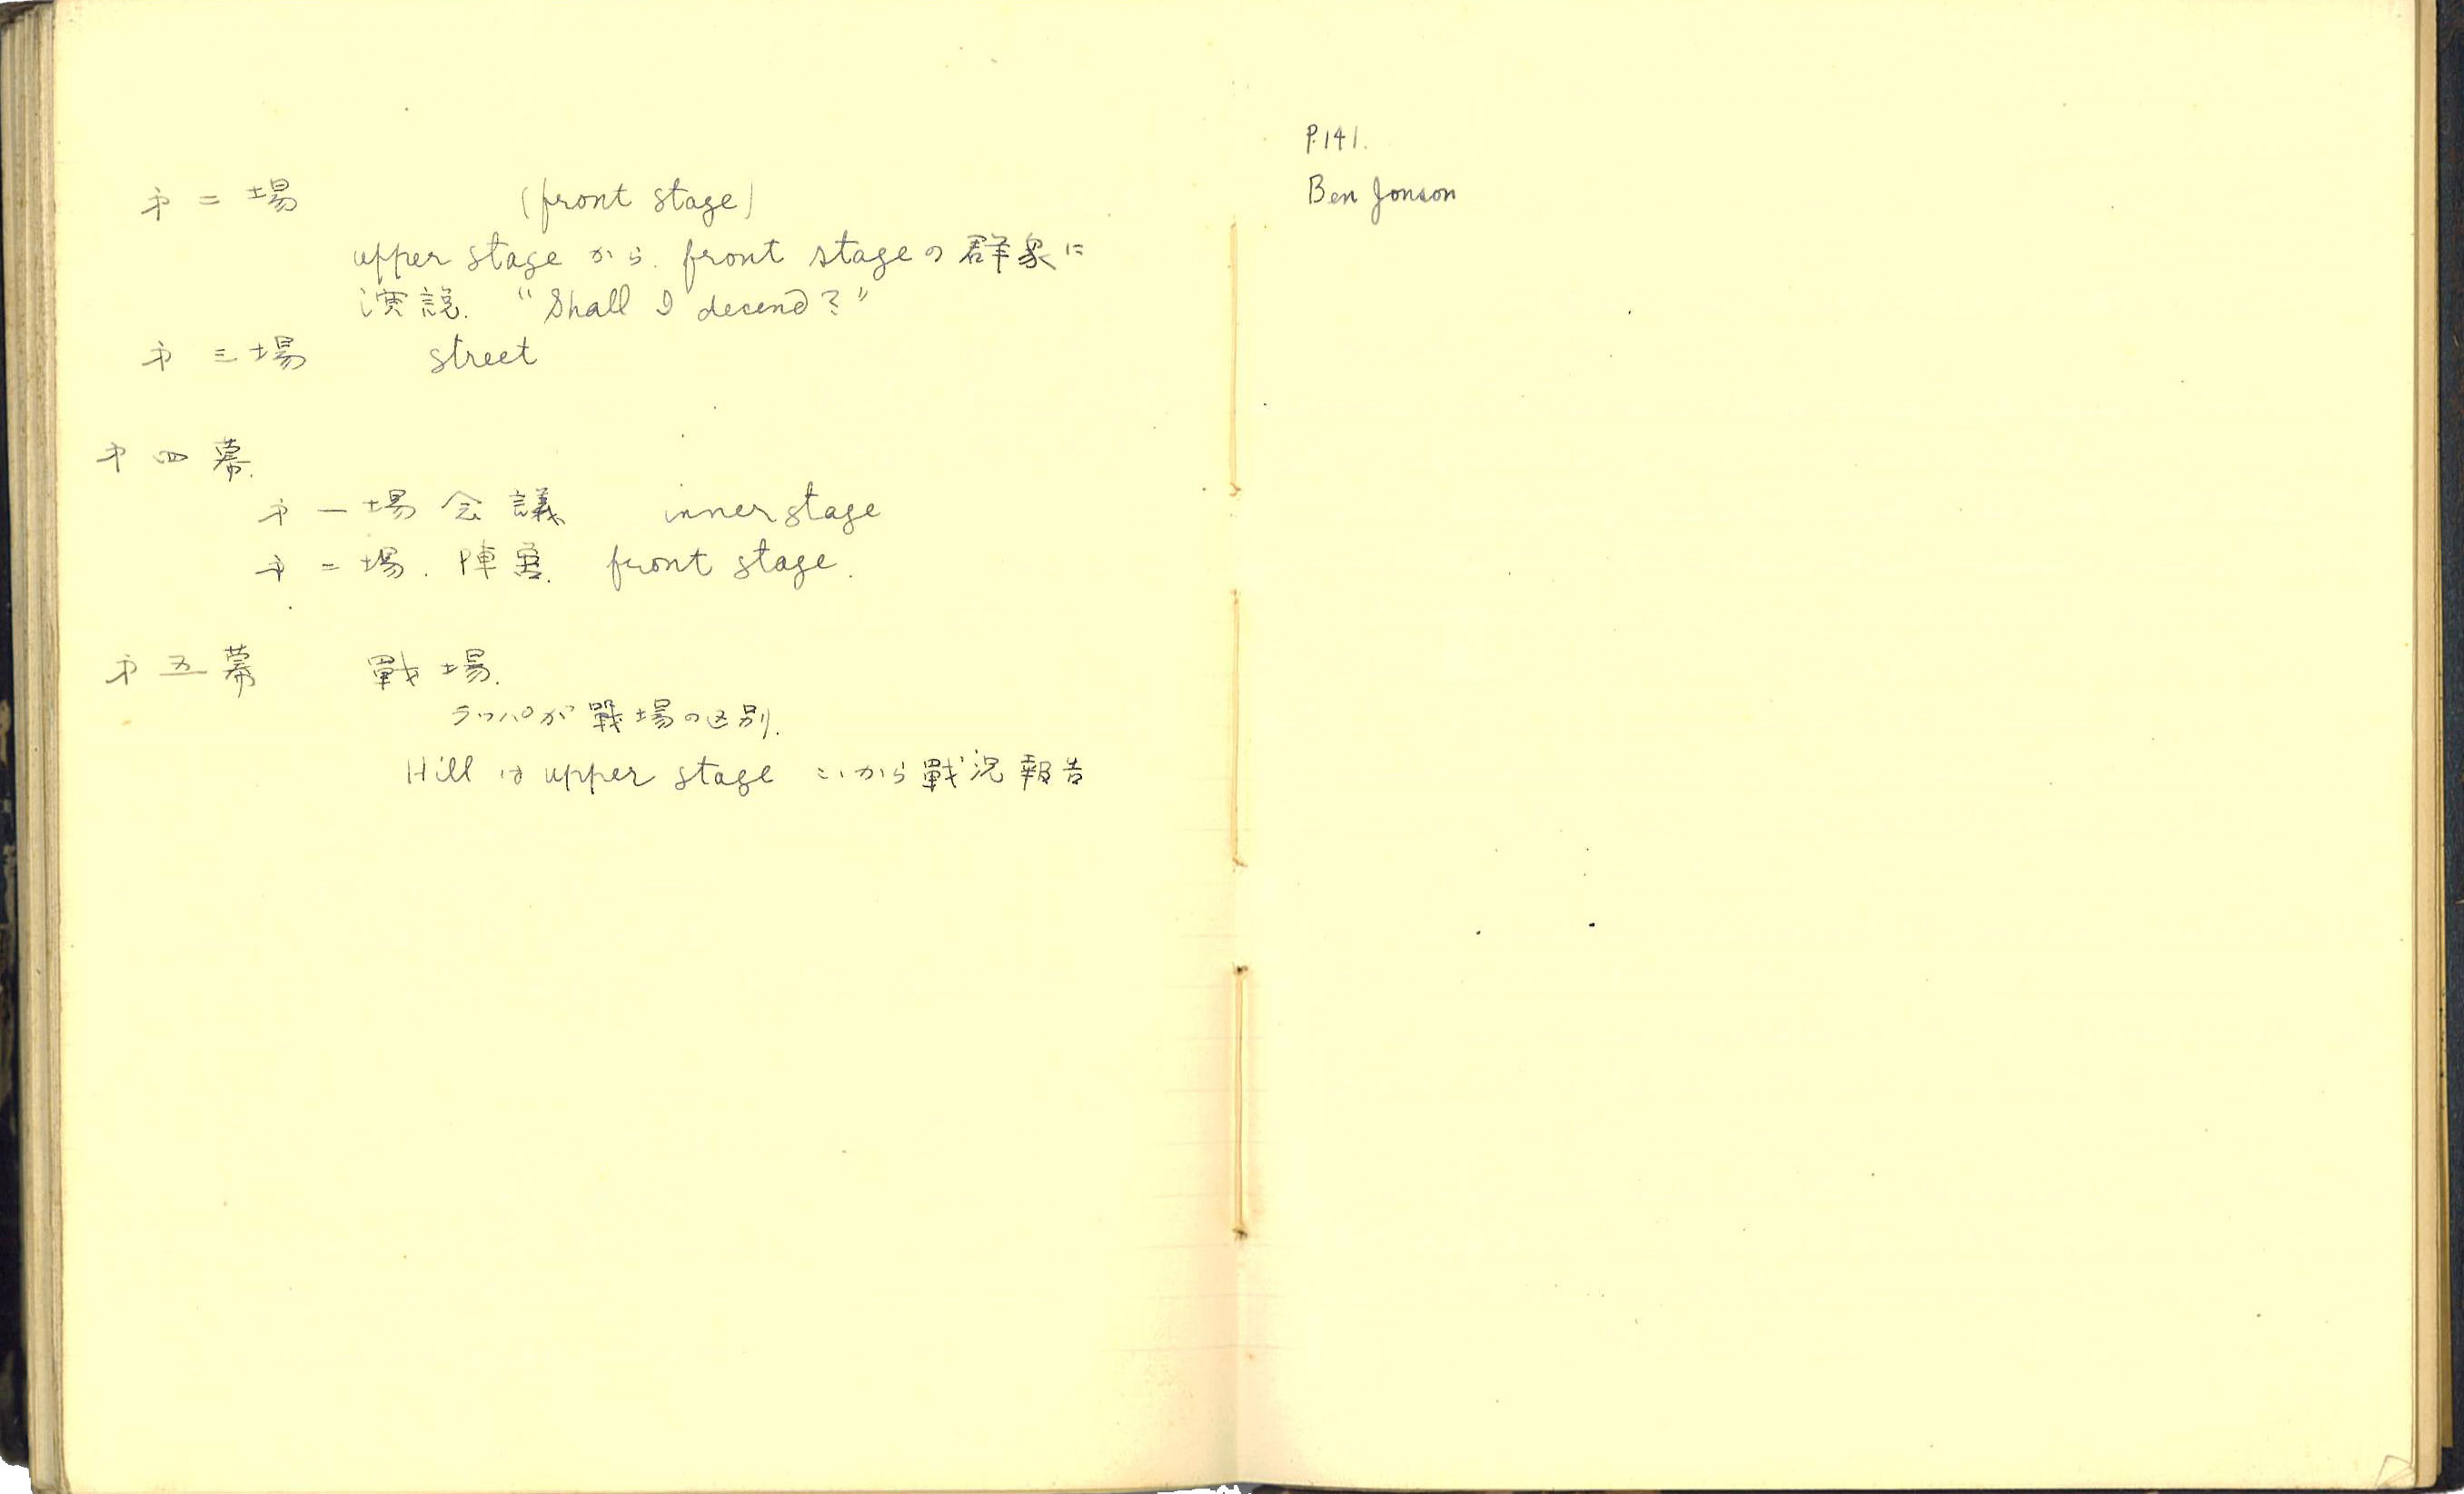 第二場 (front stage)
upper stage から. front stage の群衆に
演説. "Shall I decend?"
第三場 street
第四幕.
第一場 会議 inner stage
第二場. 陣営. front stage.
第五幕 戰場.
ラッパが戰場の区別.
Hill は upper stage こゝから戰況報告
P.141.
Ben Jonson